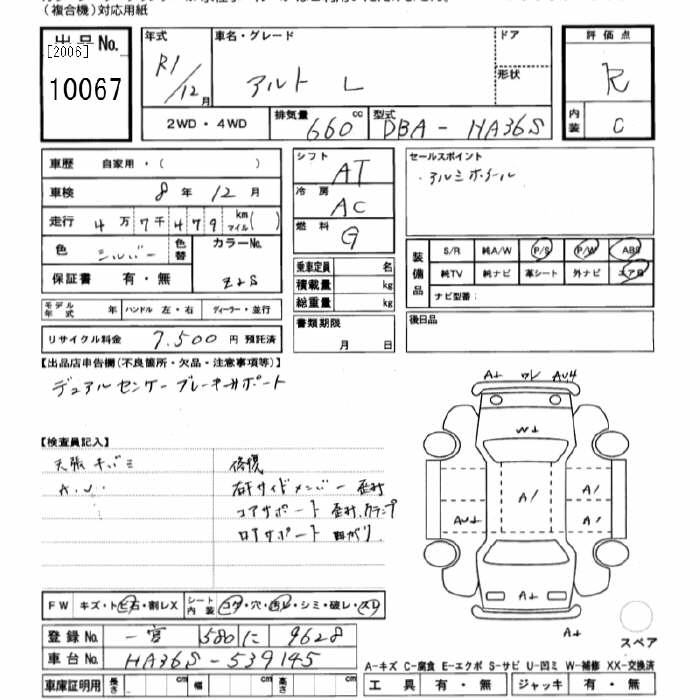 (複合機)対応用紙
出品 No.
[2006]
10067
年式 R1/12月
車名・グレード アルト L
ドア
形状
評価点 R
内装 C
2WD・4WD
排気量 660 cc
型式 DBA-HA36S
車歴 自家用・( )
車検 8年 12月
走行 4万7千479 km マイル( )
色 シルバー 色替
カラーNo. Z2S
保証書 有・無
モデル年式 年 ハンドル 左・右 ディーラー・並行
リサイクル料金 7,500 円 預託済
シフト AT
冷房 AC
燃料 G
乗車定員 名
積載量 kg
総重量 kg
書類期限
月 日
セールスポイント
・アルミホイール
装備品
S/R 純A/W P/S P/W ABS
純TV 純ナビ 革シート 外ナビ エアB
ナビ型番:
後日品
【出品店申告欄(不良箇所・欠品・注意事項等)】
デュアルセンサーブレーキサポート
【検査員記入】
天張キズミ
A.U.
修復
右Fサイドメンバー歪社
コアサポート 歪社,クランプ
ロアサポート 曲がり
A1 ワレ AU4
W1
A1
AU1
A1
A1
A1
A1
スペア
FW キズ・トビ石・割レX
シート内装 コゲ・穴・汚レ・シミ・破レ・スレ
登録 No. 一宮 580 に 9628
車台 No. HA36S-539145
車庫証明用 長さ cm 幅 cm 高さ cm
A-キズ C-腐食 E-エクボ S-サビ U-凹ミ W-補修 XX-交換済
工具 有・無 ジャッキ 有・無